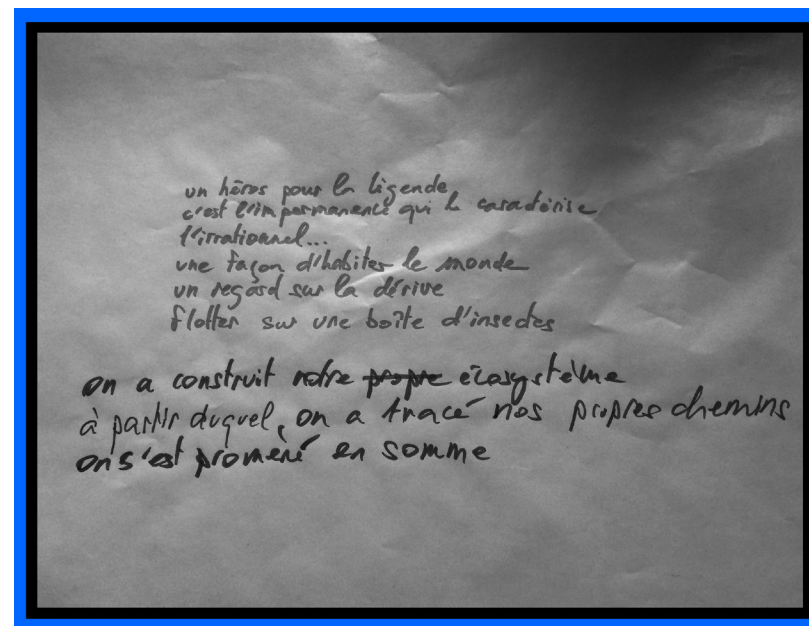 un héros pour la légende
c'est l'impermanence qui le caractérise
l'irrationnel...
une façon d'habiter le monde
un regard sur la dérive
flotter sur une boîte d'insectes
on a construit notre propre écosystème
à partir duquel, on a tracé nos propres chemins
on s'est promené en somme